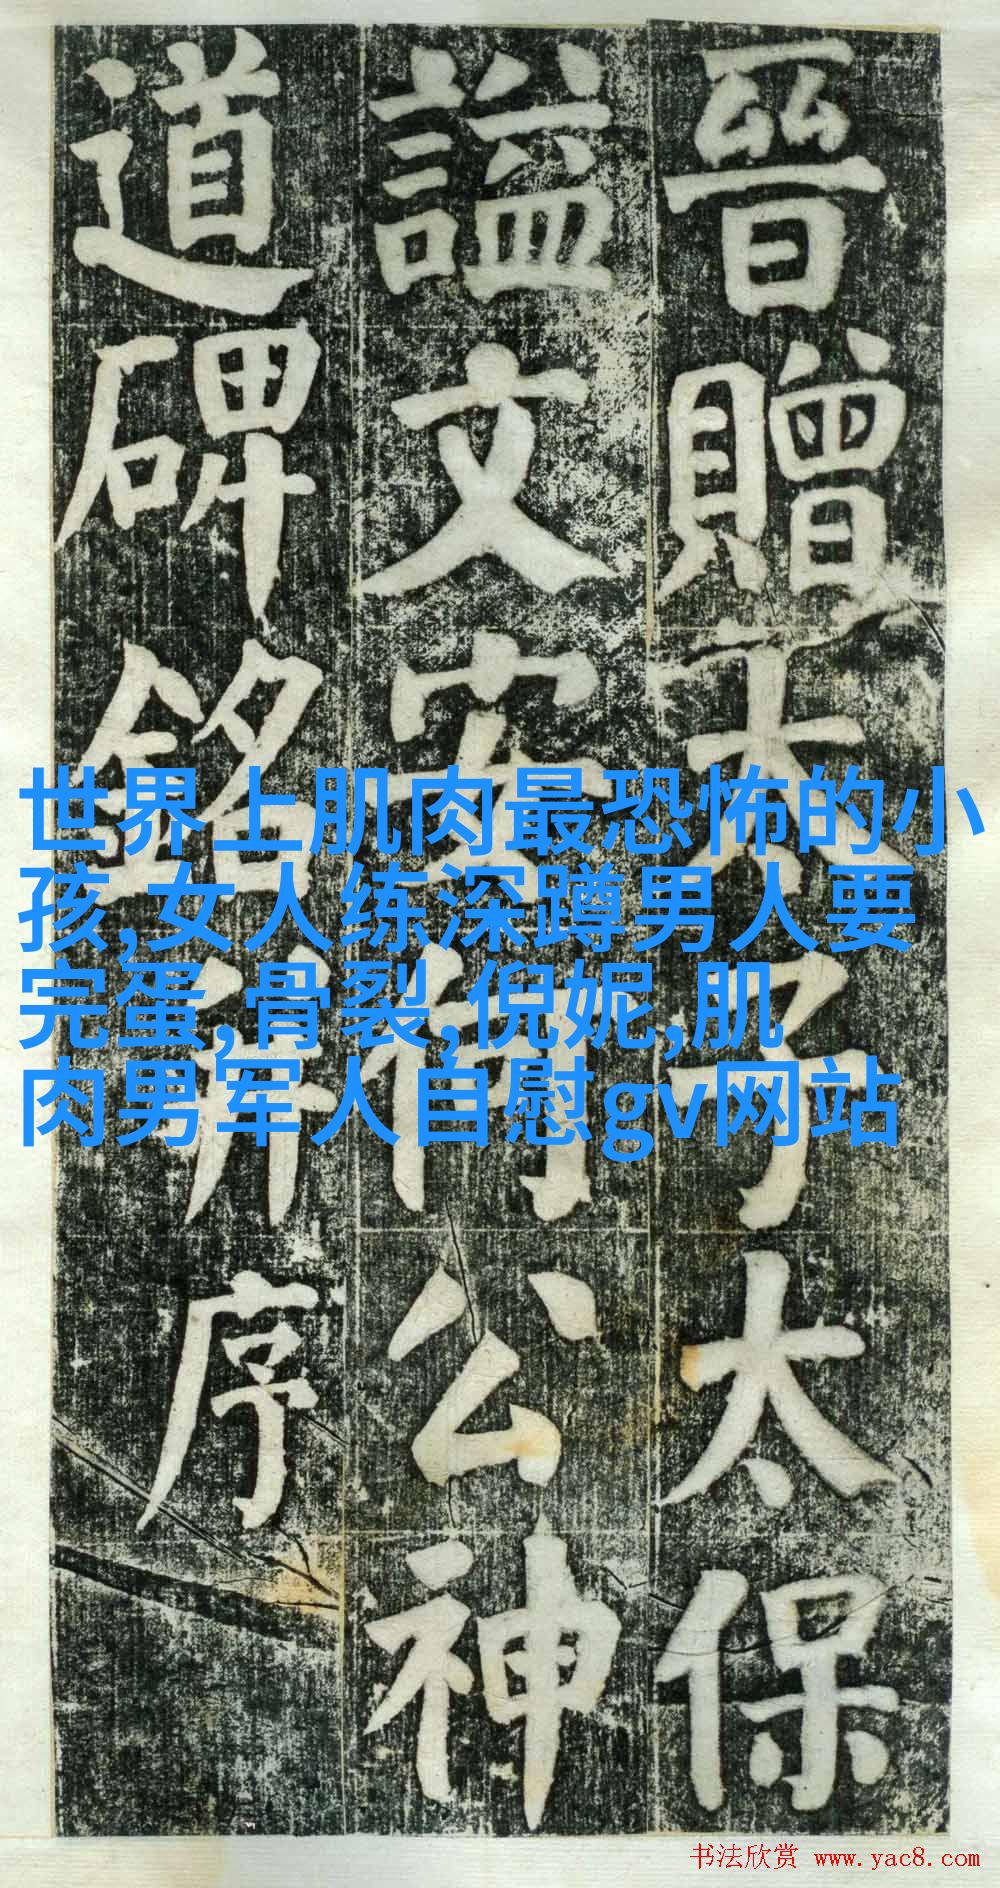 晉贈太子太保
謚文安何公神
道碑銘并序
世界上肌肉最恐怖的小
孩,女人练深蹲男人要
完蛋,骨裂,倪妮,肌
肉男军人自慰gv网站
书法欣赏 www.yac8.com